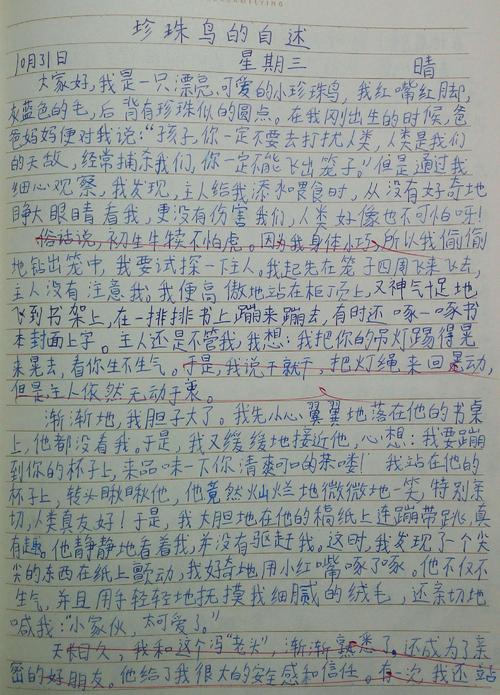 珍珠鸟的自述
10月31日 星期三 晴
大家好，我是一只漂亮、可爱的小珍珠鸟，我红嘴红脚，
灰蓝色的毛，后背有珍珠似的圆点。在我刚出生的时候，爸
爸妈妈便对我说：“孩子，你一定不要去打扰人类，人类是我们
的天敌，经常捕杀我们，你一定不能飞出笼子。”但是通过我
细心观察，我发现，主人给我添水喂食时，从没有好奇地
睁大眼睛看我，更没有伤害我们，人类好像也不可怕呀！
俗话说，初生牛犊不怕虎。因为我身体小巧，所以我偷偷
地钻出笼中，我要试探一下主人。我起先在笼子四周飞来飞去，
主人没有注意我。我便高傲地站在柜顶上，又神气十足地
飞到书架上，在一排排书上蹦来蹦去，有时还啄一啄书
本封面上字。主人还是不管我，我想：我把你的吊灯踢得晃
来晃去，看你生不生气。于是，我说干就干，把灯绳来回晃动，
但是主人依然无动于衷。
渐渐地，我胆子大了。我先小心翼翼地落在他的书桌
上，他都没看我。于是，我又缓缓地接近他，心想：我要蹦
到你的杯子上，来品味一下你清爽可口的茶喽！我站在他的
杯子上，转头瞅瞅他，他竟然灿烂地微微地一笑，特别亲
切，人类真友好！于是，我大胆地在他的稿纸上连蹦带跳，真
有趣。他静静地看着我，并没有驱赶我。这时，我发现了一个尖
尖的东西在纸上颤动，我好奇地用小红嘴啄了啄。他不仅不
生气，并且用手轻轻地抚摸我细腻的绒毛，还亲切地
喊我：“小家伙，太可爱了。”
天长日久，我和这个冯“老头”，渐渐熟悉了。还成为了亲
密的好朋友。他给了我很大的安全感和信任。有一次，我还站